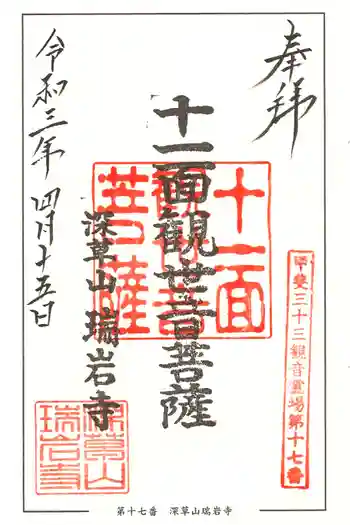 奉拝
甲斐三十三観音霊場第十七番
十一面観世音菩薩
十一面
観音
菩薩
深草山 瑞岩寺
深草山
瑞岩寺
令和三年 四月十五日
第十七番 深草山瑞岩寺